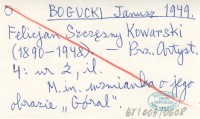 BOGUCKI Janusz 1949.
Felicjan Szczęsny Kowarski
(1890-1948). — Prz. Artyst.
4: nr 2, il.
M.in. wzmianka o jego
obrazie „Góral".